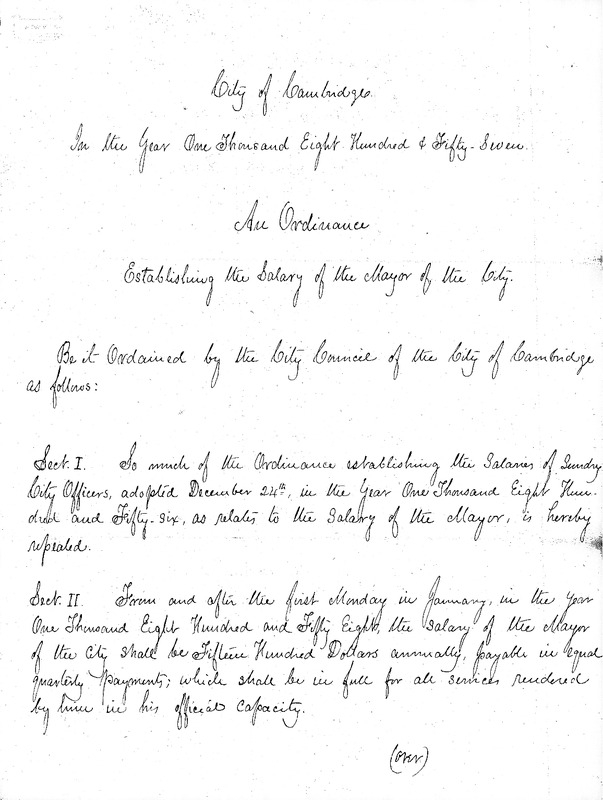 City of Cambridge.
In the Year One Thousand Eight Hundred & Fifty-Seven.
An Ordinance
Establishing the Salary of the Mayor of the City.
Be it Ordained by the City Council of the City of Cambridge
as follows:
Sect. I. So much of the Ordinance establishing the Salaries of Sundry
City Officers, adopted December 24th, in the Year One Thousand Eight Hun-
dred and Fifty-six, as relates to the Salary of the Mayor, is hereby
repealed.
Sect. II. From and after the first Monday in January, in the Year
One Thousand Eight Hundred and Fifty Eight, the Salary of the Mayor
of the City shall be Fifteen Hundred Dollars annually, payable in equal
quarterly payments; which shall be in full for all services rendered
by him in his official capacity.
(over)